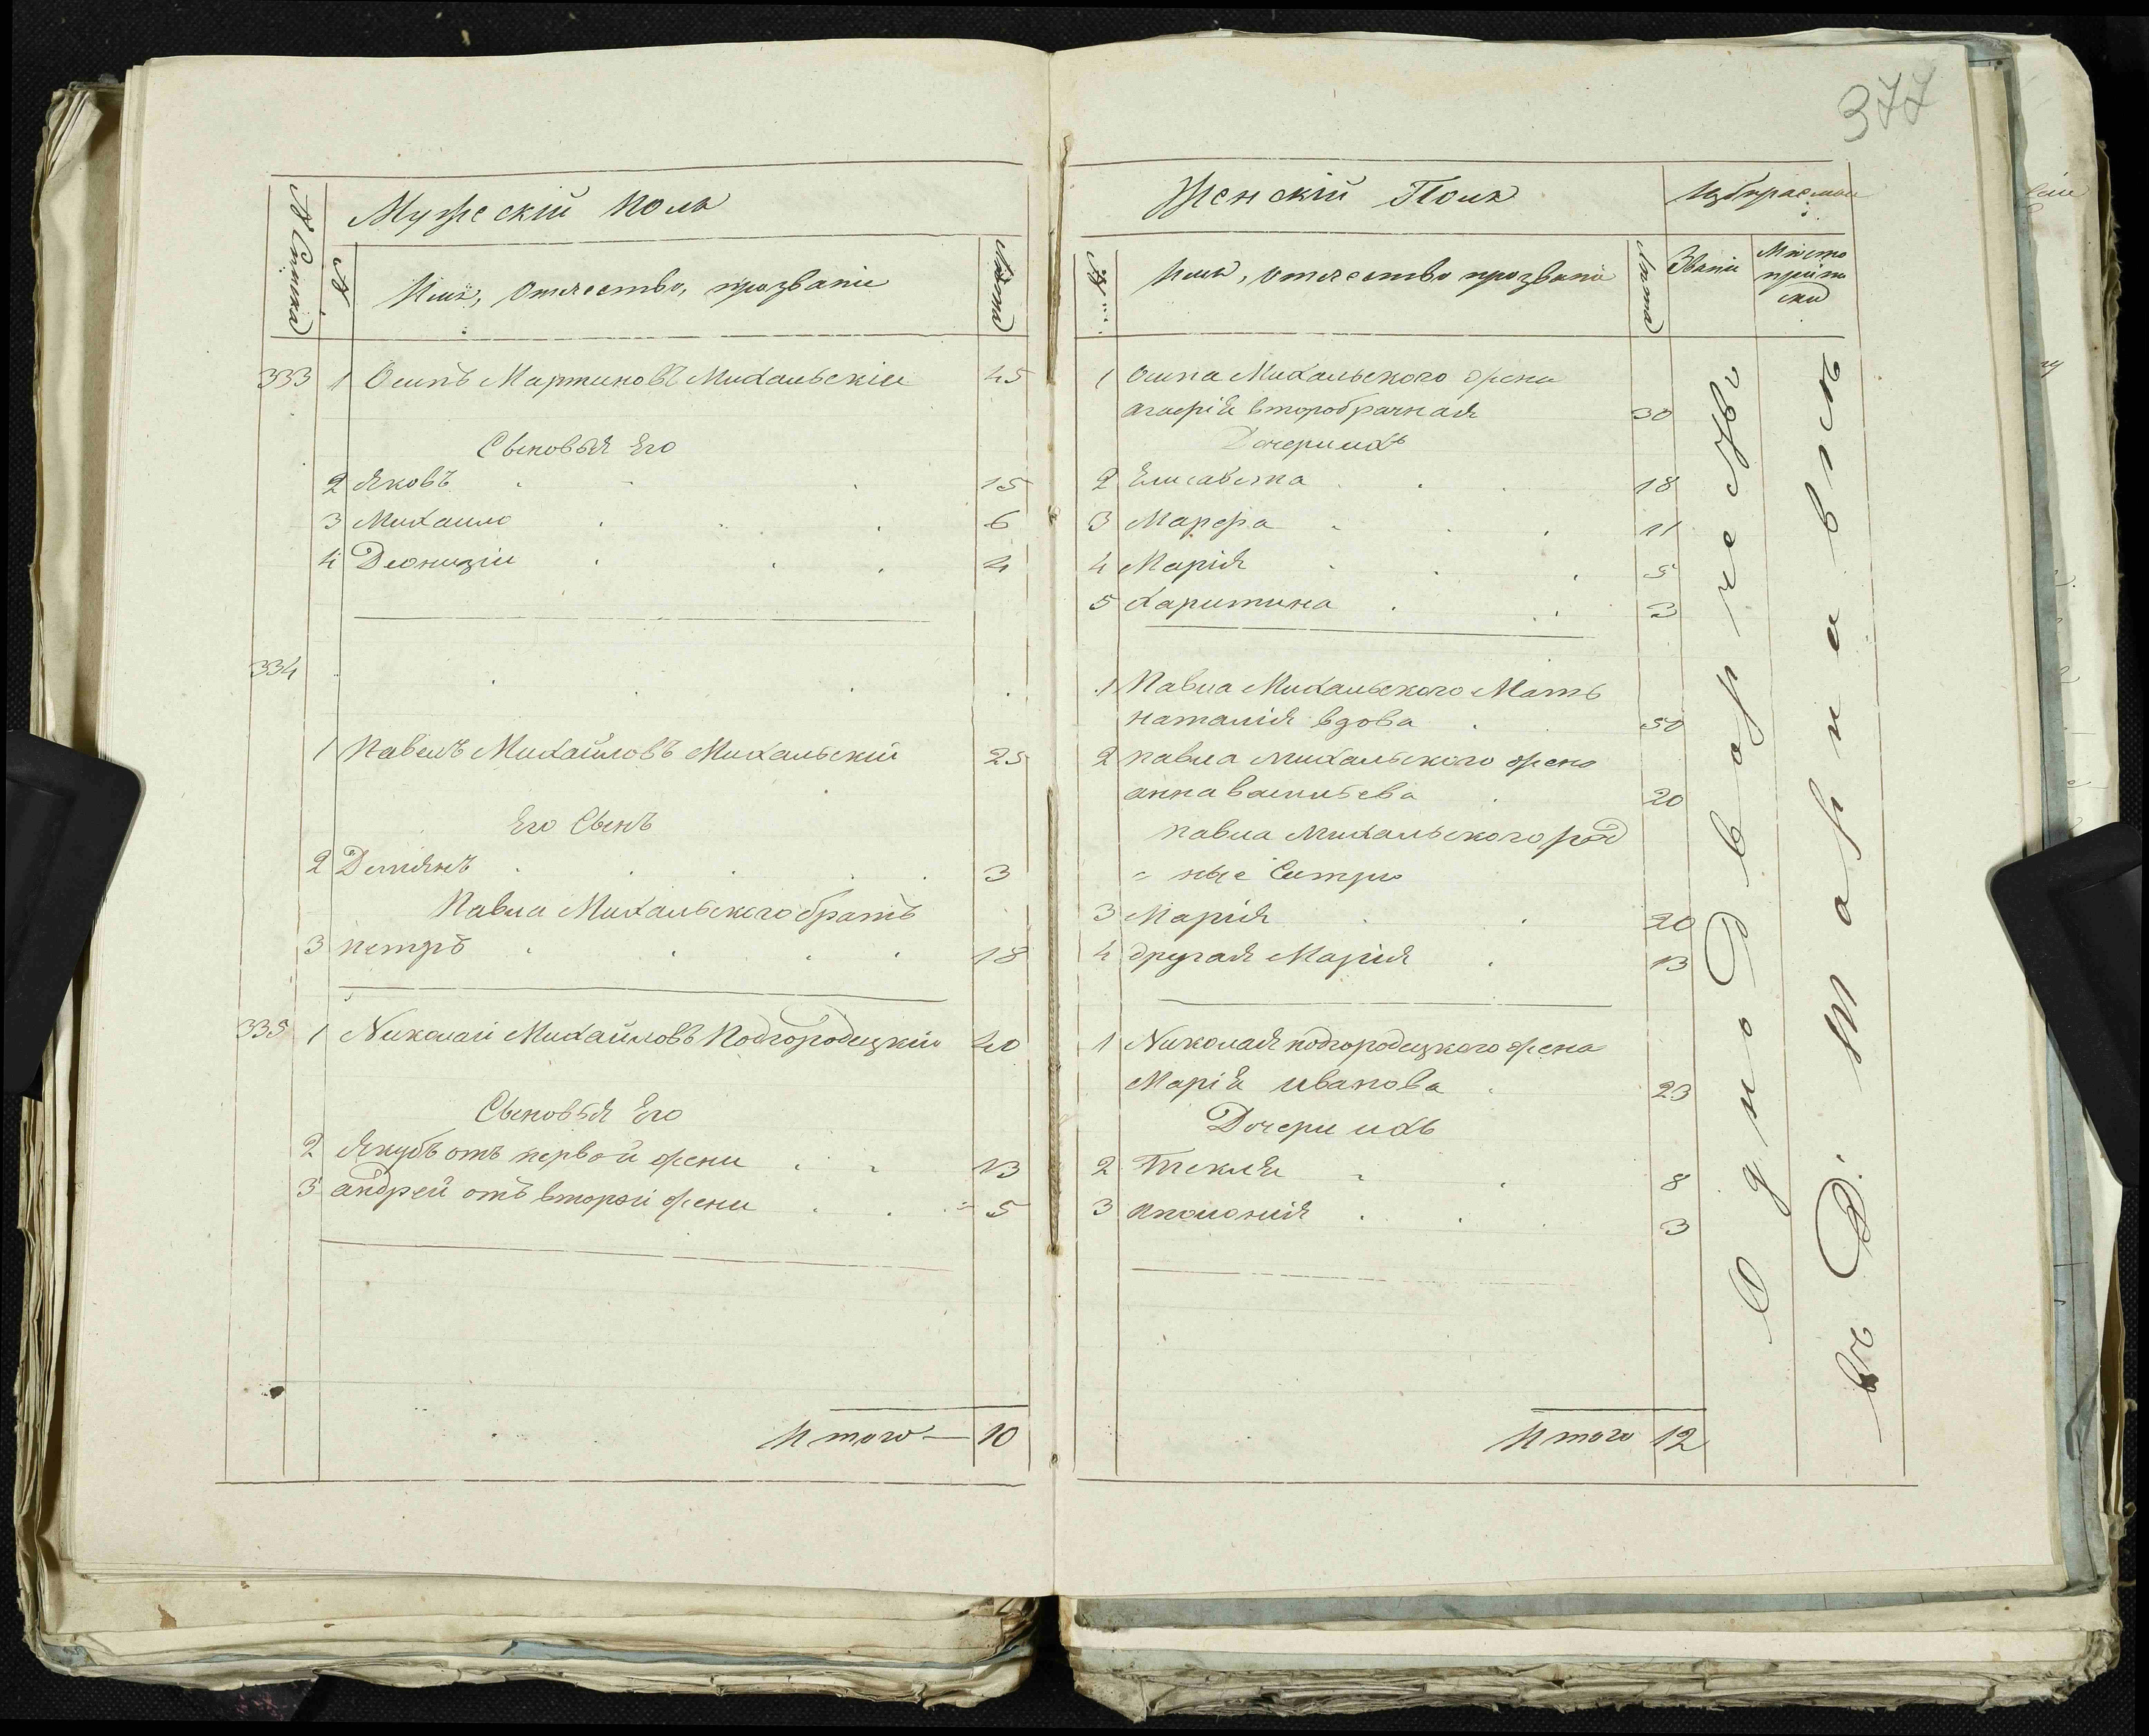 377
Мужескій полъ
№ Списка
№
Имя, Отчество, прозваніе
Лѣта
333 1 Осипъ Мартиновъ Михальскій 45
Сыновья Его
2 Яковъ 15
3 Михаило 6
4 Деонизій 4
334
1 Павелъ Михайловъ Михальскій 25
Его Сынъ
2 Демянъ 3
Павла Михальского братъ
3 петръ 18
335 1 Николай Михайловъ Подгородецкій 40
Сыновья Его
2 Якубъ отъ первой жены 13
3 андрей отъ второй жены 5
Итого — 10
Женскій Полъ
Избираемые
№
Имя, отчество прозваніе
Лѣта
Званіе
Мѣсто
припи
ски
1 Осипа Михальского жена
агафія второбрачная 30
Дочери ихъ
2 Елисавета 18
3 Марфа 11
4 Марія 5
5 Харитина 3
1 Павла Михальского Мать
наталія вдова 50
2 павла михальского жена
анна васильева 20
павла Михальского род
ные Сестры
3 Марія 20
4 другая Марія 13
1 Николая подгородецкого жена
Марія иванова 23
Дочери ихъ
2 Текля 8
3 Аполонія 3
Итого 12
Однодворчество
въ Д.